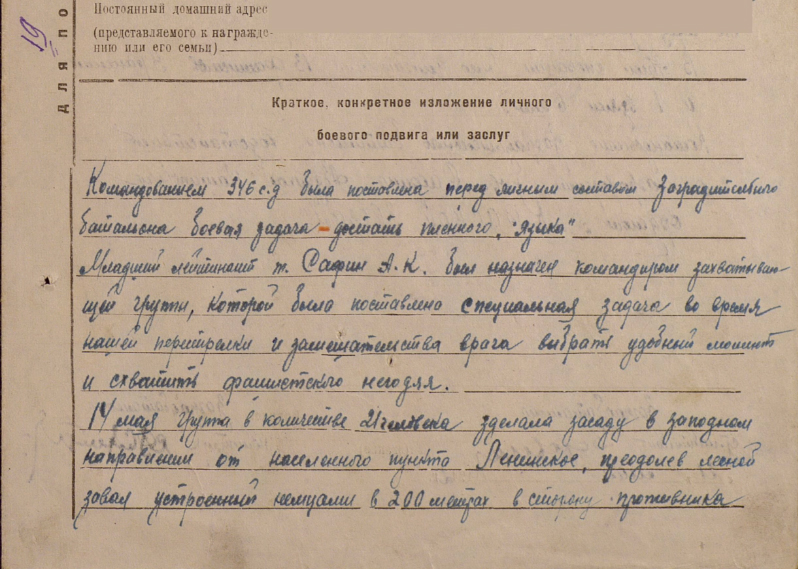 19
ДЛЯ ПО
Постоянный домашний адрес
(представляемого к награжде-
нию или его семьи)
Краткое, конкретное изложение личного
боевого подвига или заслуг
Командованием 346 с.д была поставлена перед личным составом Заградительного
батальона боевая задача – достать пленного, "языка"
Младший лейтинант т. Сафин А.К. был назначен командиром захватываю-
щей групы, которой была поставлено специальная задача во время
нашей перитрелки и замешательства врага выбрать удобный момент
и схватить фашистского негодяя.
14 мая група в количестве 21 человека зделала засаду в заподном
направлении от населенного пункта Ленинское, преодолев лесной
завал устроенный немцами в 200 метрах в сторону противника